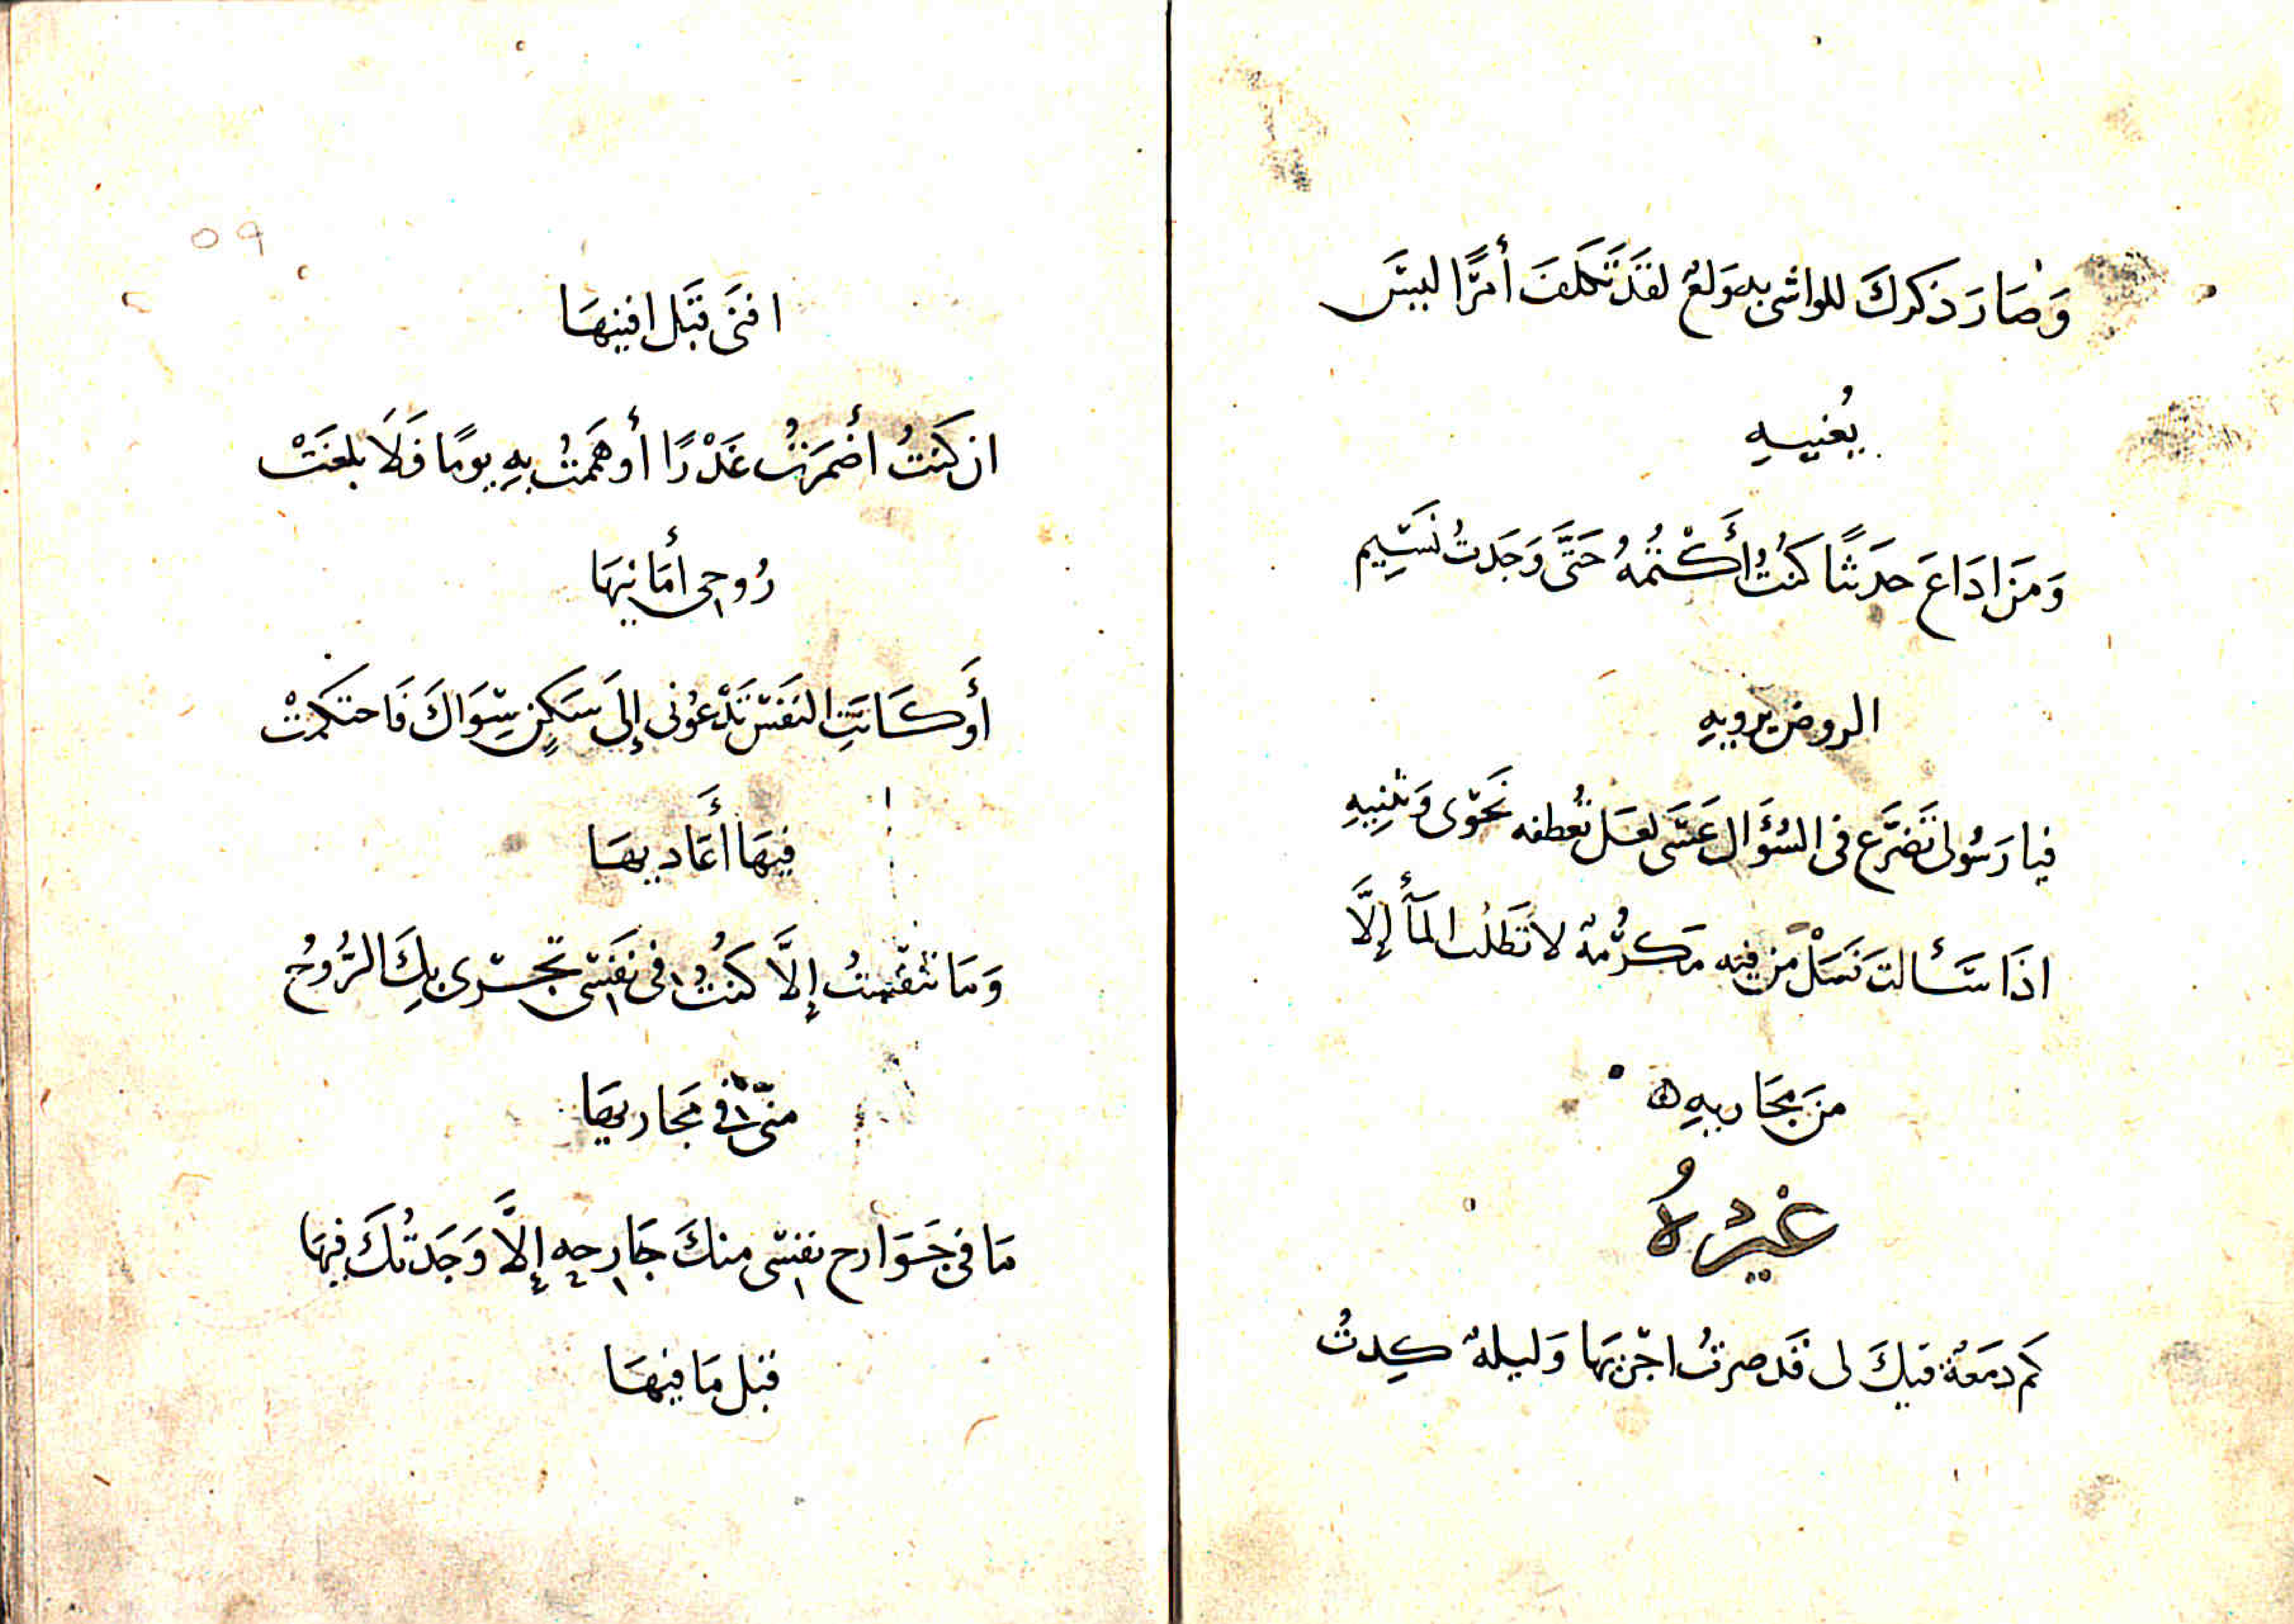 وَصَارَ ذَكرُكَ للواشى به وَلعٌ لقَد تَكَلفَ أمرًا ليسَ
يُغنيهِ
وَمَن اذَاعَ حديثًا كنتُ أَكْتمُهُ حَتَّى وَجَدتُ نَسِيم
الروض يرويهِ
فيا رَسُولى تَضرَّع فى السُؤَالِ عَسَى لعَل تُعطفه نَحوى وَتثنِيهِ
اذَا سَألتَ فَسَلْ مَن فيه مَكرُمةٌ لا تَطلُب المَآ إلَّا
مِن مجَاريهِ
غيرُهُ
كم دمعَةٌ فيكَ لى قَد صرتُ اجْريهَا وَليلةٌ كِدتُ
٥٩
افنَى قَبَل افنيهَا
ان كنتُ أضمَرتُ غَدْرًا أو هَمَمتُ بِهِ يومًا فَلَا بلغَتْ
رُوحى أمَانيهَا
أَو كَانَتِ النَفسُ تَدْعُونى إلىَ سَكَنٍ سِوَاكَ فَاحتكمَتْ
فيهَا أَعَاديهَا
وَمَا تنفستُ إلَّا كنتُ فى نفَسى تجْرى بِكَ الرُّوحُ
منّى فى مَجاريهَا
مَا فى جَوَارح نفسى منكَ جَارحه إلَّا وَجَدتُكَ فيهَا
قبل مَا فيهَا